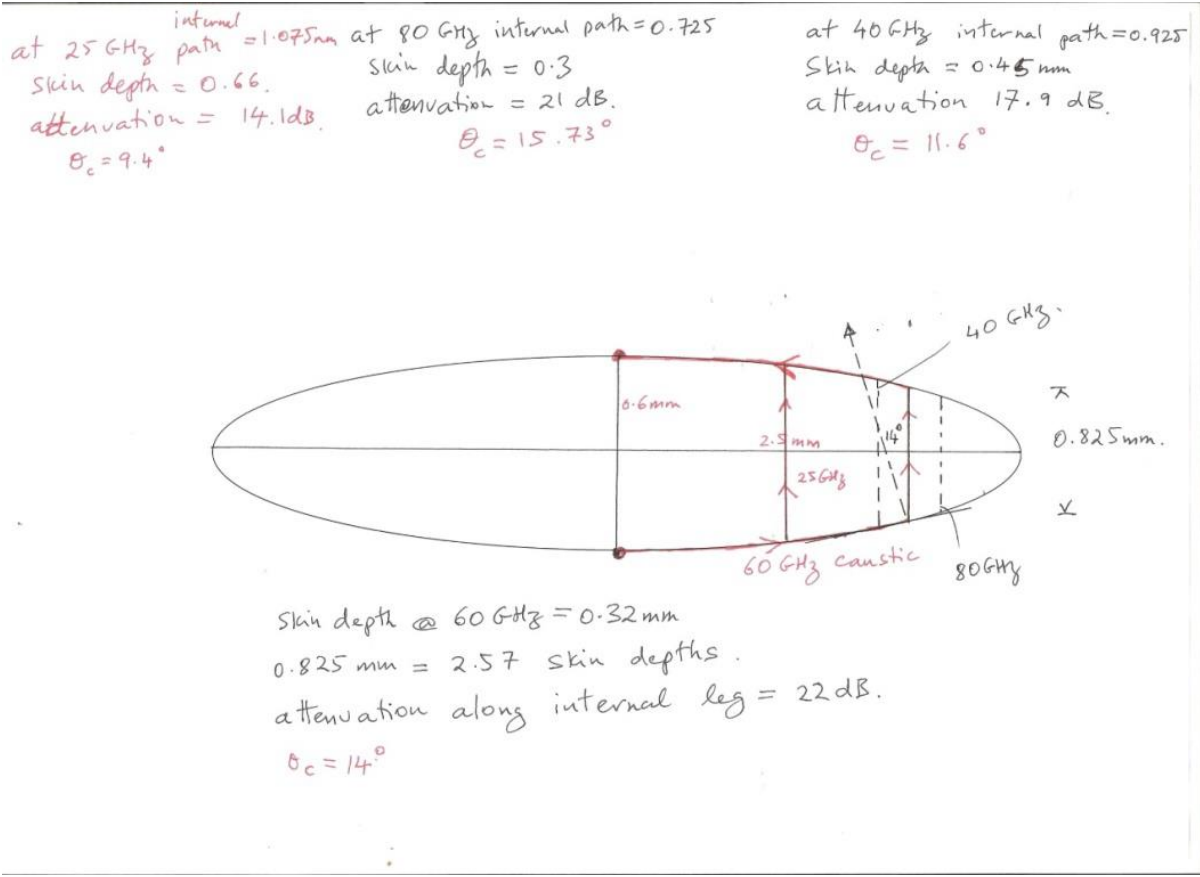 internal
at 25 GHz path =1.075mm
Skin depth = 0.66.
attenuation = 14.1dB.
θc = 9.4°
at 80 GHz internal path = 0.725
skin depth = 0.3
attenuation = 21 dB.
θc = 15.73°
at 40 GHz internal path = 0.925
Skin depth = 0.45 mm
attenuation 17.9 dB.
θc = 11.6°
40 GHz.
0.6mm
14°
0.825mm.
2.5 mm
25GHz
60 GHz caustic
80GHz
Skin depth @ 60 GHz = 0.32mm
0.825 mm = 2.57 skin depths.
attenuation along internal leg = 22dB.
θc = 14°